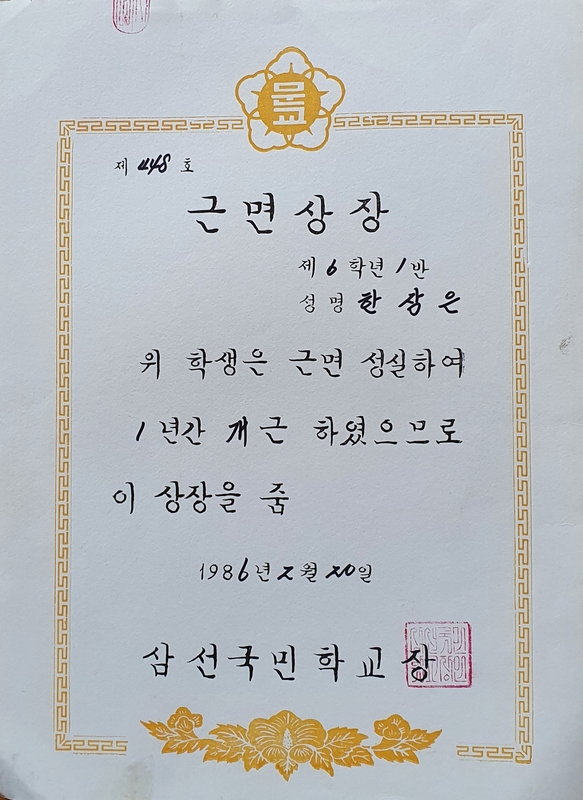 문교
제 448 호
근면상장
제 6 학년 1 반
성명 한상은
위 학생은 근면 성실하여
1 년간 개근 하였으므로
이 상장을 줌
1986년 2월 20일
삼선국민학교장